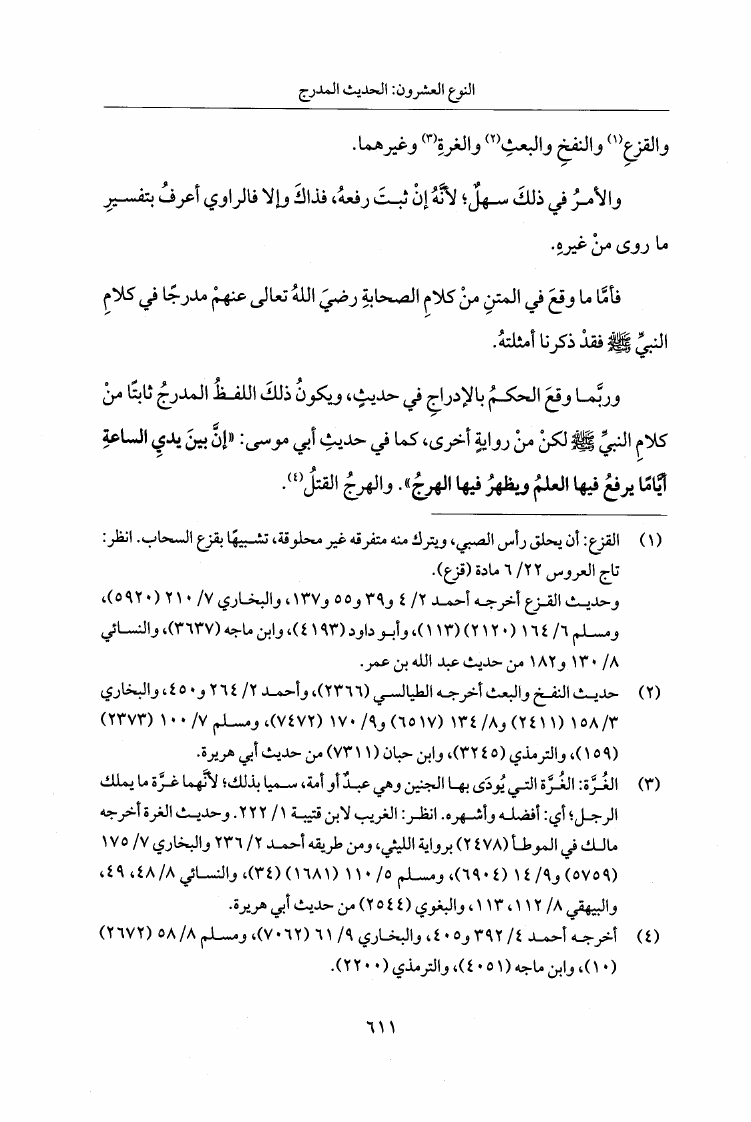 النوع العشرون: الحديث المدرج
والقزعِ(١) والنفخِ والبعثِ(٢) والغرةِ(٣) وغيرهما.
والأمرُ في ذلكَ سهلٌ؛ لأنَّهُ إنْ ثبتَ رفعهُ، فذاكَ وإلا فالراوي أعرفُ بتفسيرِ
ما روى منْ غيرهِ.
فأمَّا ما وقعَ في المتنِ منْ كلامِ الصحابةِ رضيَ اللهُ تعالى عنهمْ مدرجًا في كلامِ
النبيِّ ﷺ فقدْ ذكرنا أمثلتهُ.
وربَّما وقعَ الحكمُ بالإدراجِ في حديثٍ، ويكونُ ذلكَ اللفظُ المدرجُ ثابتًا منْ
كلامِ النبيِّ ﷺ لكنْ منْ روايةٍ أخرى، كما في حديثِ أبي موسى: «إنَّ بينَ يديِ الساعةِ
أيَّامًا يرفعُ فيها العلمُ ويظهرُ فيها الهرجُ». والهرجُ القتلُ(٤).
(١) القزع: أن يحلق رأس الصبي، ويترك منه متفرقه غير محلوقة، تشبيهًا بقزع السحاب. انظر:
تاج العروس ٢٢/ ٦ مادة (قزع).
وحديث القزع أخرجه أحمد ٢/ ٤ و٣٩ و٥٥ و١٣٧، والبخاري ٧/ ٢١٠ (٥٩٢٠)،
ومسلم ٦/ ١٦٤ (٢١٢٠) (١١٣)، وأبو داود (٤١٩٣)، وابن ماجه (٣٦٣٧)، والنسائي
٨/ ١٣٠ و١٨٢ من حديث عبد الله بن عمر.
(٢) حديث النفخ والبعث أخرجه الطيالسي (٢٣٦٦)، وأحمد ٢/ ٢٦٤ و٤٥٠، والبخاري
٣/ ١٥٨ (٢٤١١) و٨/ ١٣٤ (٦٥١٧) و٩/ ١٧٠ (٧٤٧٢)، ومسلم ٧/ ١٠٠ (٢٣٧٣)
(١٥٩)، والترمذي (٣٢٤٥)، وابن حبان (٧٣١١) من حديث أبي هريرة.
(٣) الغُرَّة: الغُرَّة التي يُودَى بها الجنين وهي عبدٌ أو أمة، سميا بذلك؛ لأنَّهما غرَّة ما يملك
الرجل؛ أي: أفضله وأشهره. انظر: الغريب لابن قتيبة ١/ ٢٢٢. وحديث الغرة أخرجه
مالك في الموطأ (٢٤٧٨) برواية الليثي، ومن طريقه أحمد ٢/ ٢٣٦ والبخاري ٧/ ١٧٥
(٥٧٥٩) و٩/ ١٤ (٦٩٠٤)، ومسلم ٥/ ١١٠ (١٦٨١) (٣٤)، والنسائي ٨/ ٤٨، ٤٩،
والبيهقي ٨/ ١١٢، ١١٣، والبغوي (٢٥٤٤) من حديث أبي هريرة.
(٤) أخرجه أحمد ٤/ ٣٩٢ و٤٠٥، والبخاري ٩/ ٦١ (٧٠٦٢)، ومسلم ٨/ ٥٨ (٢٦٧٢)
(١٠)، وابن ماجه (٤٠٥١)، والترمذي (٢٢٠٠).
٦١١